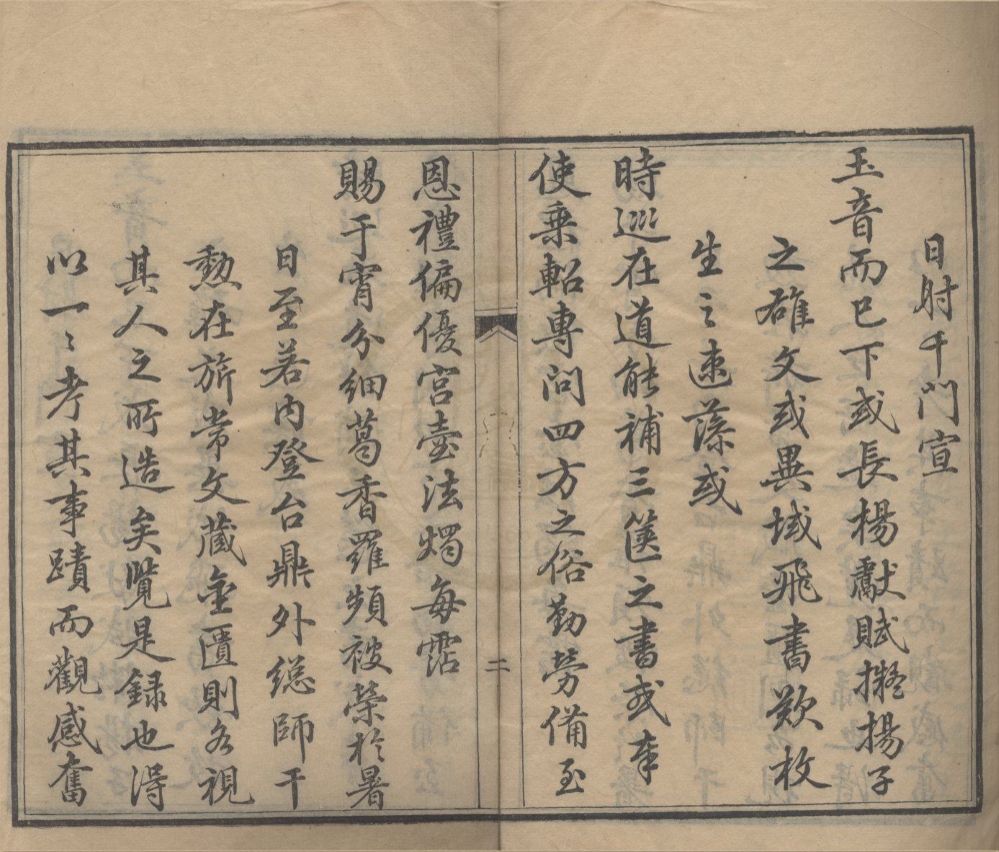 日射千門宣
玉音而已下或長楊獻賦擬揚子
之雄文或異域飛書歎枚
生之速藻或
時巡在道能補三篋之書或奉
使乘軺專問四方之俗勤勞備至
二
恩禮偏優宮壺法燭每霑
賜于宵分細葛香羅頻被榮於暑
日至若內登台鼎外總師干
勲在旂常文藏金匱則各視
其人之所造矣覽是錄也得
以一〻考其事蹟而觀感奮